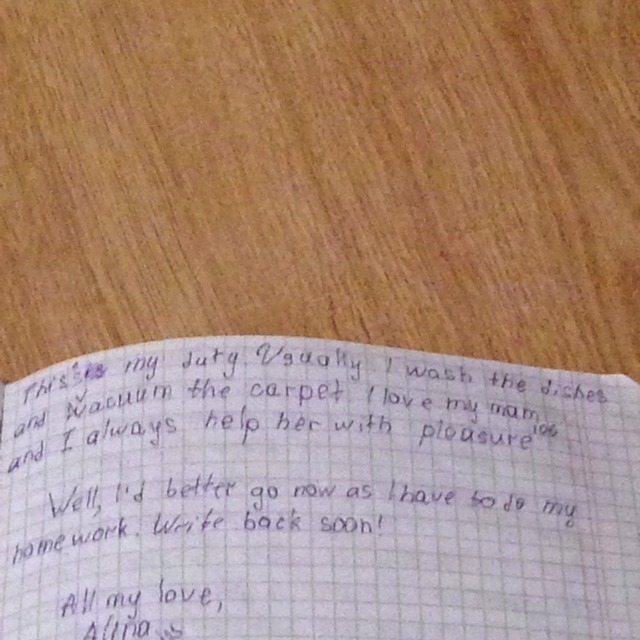 This is my duty. Usually I wash the dishes
and vacuum the carpet. I love my mam
and I always help her with pleasure
Well, I'd better go now as I have to do my
homework. Write back soon!
All my love,
Alina